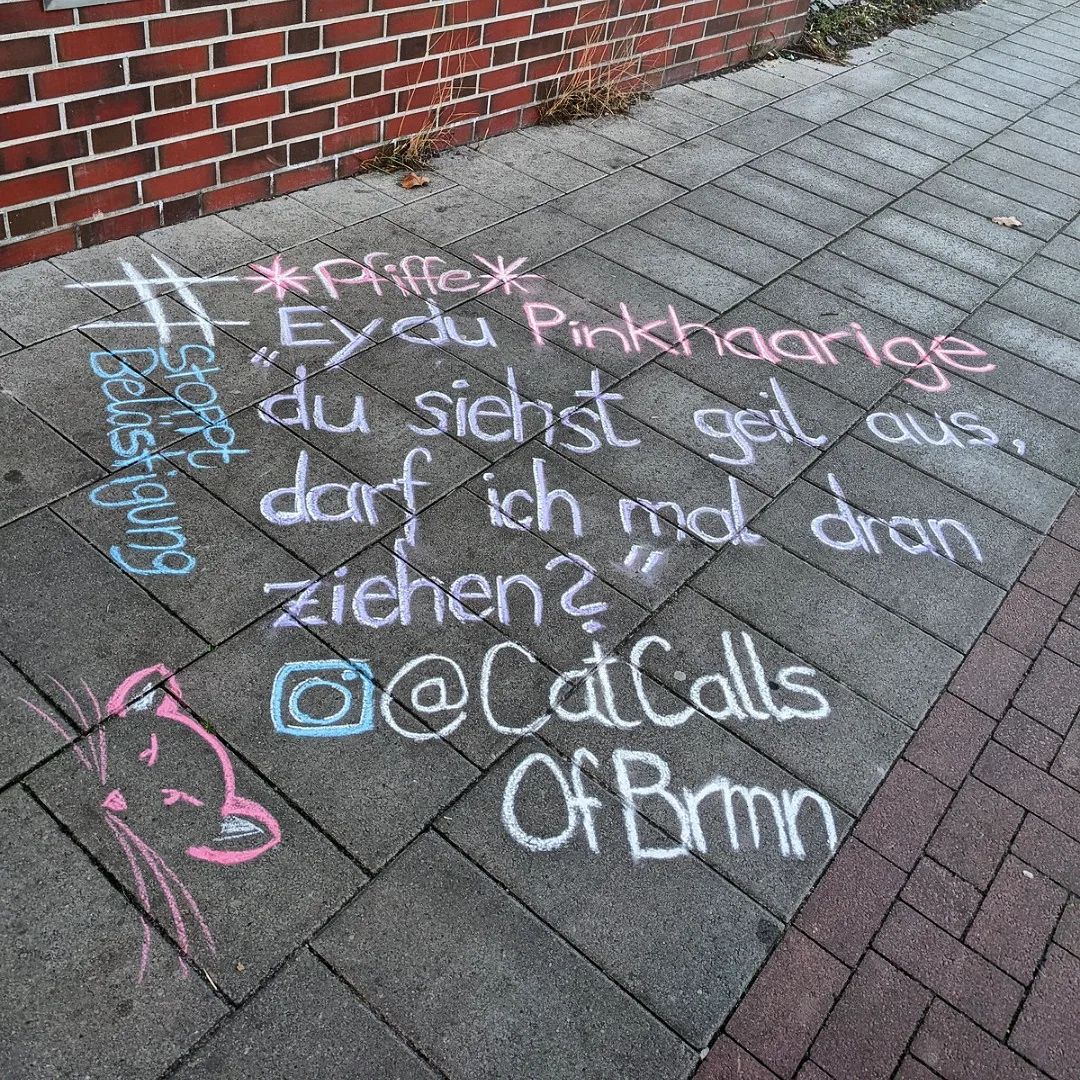 #
Stoppt
Belästigung
*Pfiffe*
"Ey du Pinkhaarige
du siehst geil aus,
darf ich mal dran
ziehen?"
@CatCalls
OfBrmn